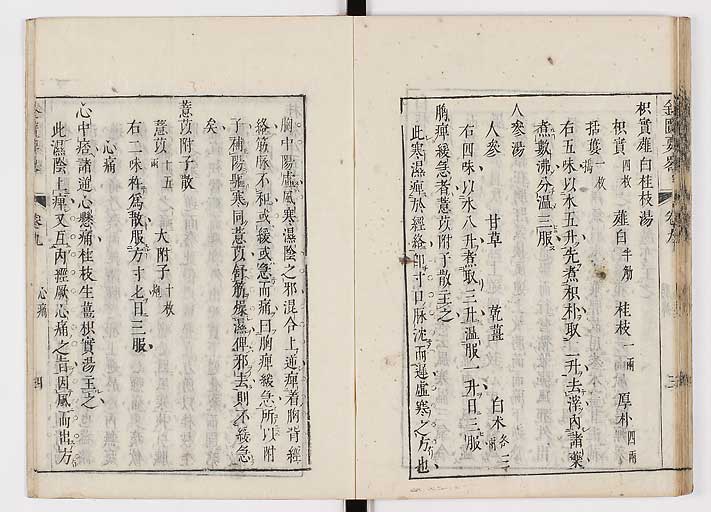 枳實薤白桂枝湯
枳實四枚 薤白半觔 桂枝一兩 厚朴四兩
括蔞一枚搗
右五味以水五升先煮枳朴取二升去滓內諸藥
煮數沸分溫三服
人參湯
人參 甘草 乾薑 白朮各三兩
右四味以水八升煮取三升溫服一升日三服
胸痺緩急者薏苡附子散主之
此寒濕痺於經絡即寸口脉沈而遲虛寒之方也
卷九
三
胸中陽虛風寒濕陰之邪混合上逆痺着胸背經
絡筋脉不和或緩或急而痛曰胸痺緩急所以附
子補陽驅寒同薏苡舒筋燥濕俾邪去則不緩急
矣
薏苡附子散
薏苡十五兩 大附子十枚炮
右二味杵為散服方寸匕日三服
心痛
心中痞諸逆心懸痛桂枝生薑枳實湯主之
此濕陰上痺又互內經厥心痛之旨因風而也方
卷九
心痛
四